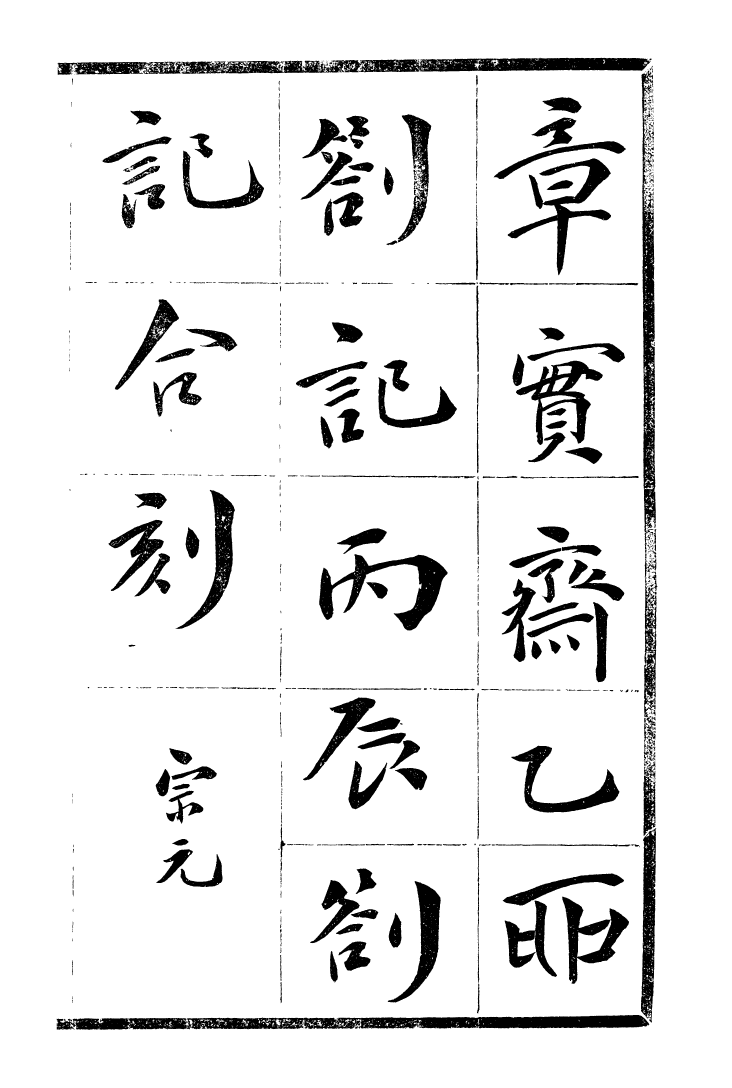 章實齋乙丣
劄記丙辰劄
記合刻
宗元